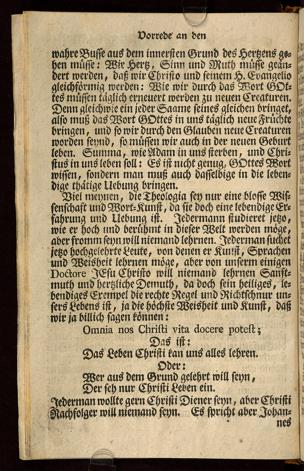 Vorrede an den
wahre Busse aus dem innersten Grund des Hertzens ge-
hen müsse: Wie Hertz, Sinn und Muth müsse geän-
dert werden, daß wir Christo und seinem H. Evangelio
gleichförmig werden: Wie wir durch das Wort GOt-
tes müssen täglich erneuert werden zu neuen Creaturen.
Denn gleichwie ein jeder Saame seines gleichen bringet,
also muß das Wort GOttes in uns täglich neue Früchte
bringen, und so wir durch den Glauben neue Creaturen
worden seynd, so müssen wir auch in der neuen Geburt
leben. Summa, wie Adam in uns sterben, und Chri-
stus in uns leben soll: Es ist nicht genug, GOttes Wort
wissen, sondern man muß auch dasselbige in die leben-
dige thätige Uebung bringen.
Viel meynen, die Theologia sey nur eine blosse Wis-
senschaft und Wort-Kunst, da sie doch eine lebendige Er-
fahrung und Uebung ist. Jedermann studieret jetzo,
wie er hoch und berühmt in dieser Welt werden möge,
aber fromm seyn will niemand lehrnen. Jederman suchet
jetzo hochgelehrte Leute, von denen er Kunst, Sprachen
und Weisheit lehrnen möge, aber von unserm einigen
Doctore JEsu Christo will niemand lehrnen Sanft-
muth und hertzliche Demuth, da doch sein heiliges, le-
bendiges Exempel die rechte Regel und Richtschnur un-
sers Lebens ist, ja die höchste Weisheit und Kunst, daß
wir ja billich sagen können:
Omnia nos Christi vita docere potest;
Das ist:
Das Leben Christi kan uns alles lehren.
Oder:
Wer aus dem Grund gelehrt will seyn,
Der seh nur Christi Leben ein.
Jederman wollte gern Christi Diener seyn, aber Christi
Nachfolger will niemand seyn. Es spricht aber Johan-
nes